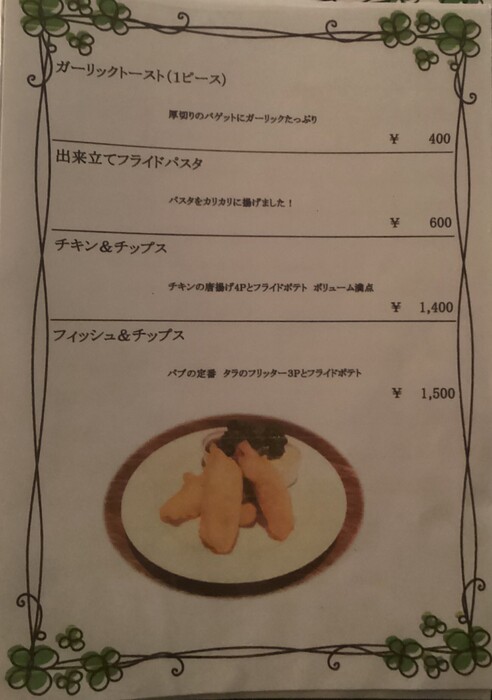 ガーリックトースト(1ピース)
厚切りのバゲットにガーリックたっぷり
¥ 400
出来立てフライドパスタ
パスタをカリカリに揚げました！
¥ 600
チキン＆チップス
チキンの唐揚げ4Pとフライドポテト ボリューム満点
¥ 1,400
フィッシュ＆チップス
パブの定番 タラのフリッター3Pとフライドポテト
¥ 1,500